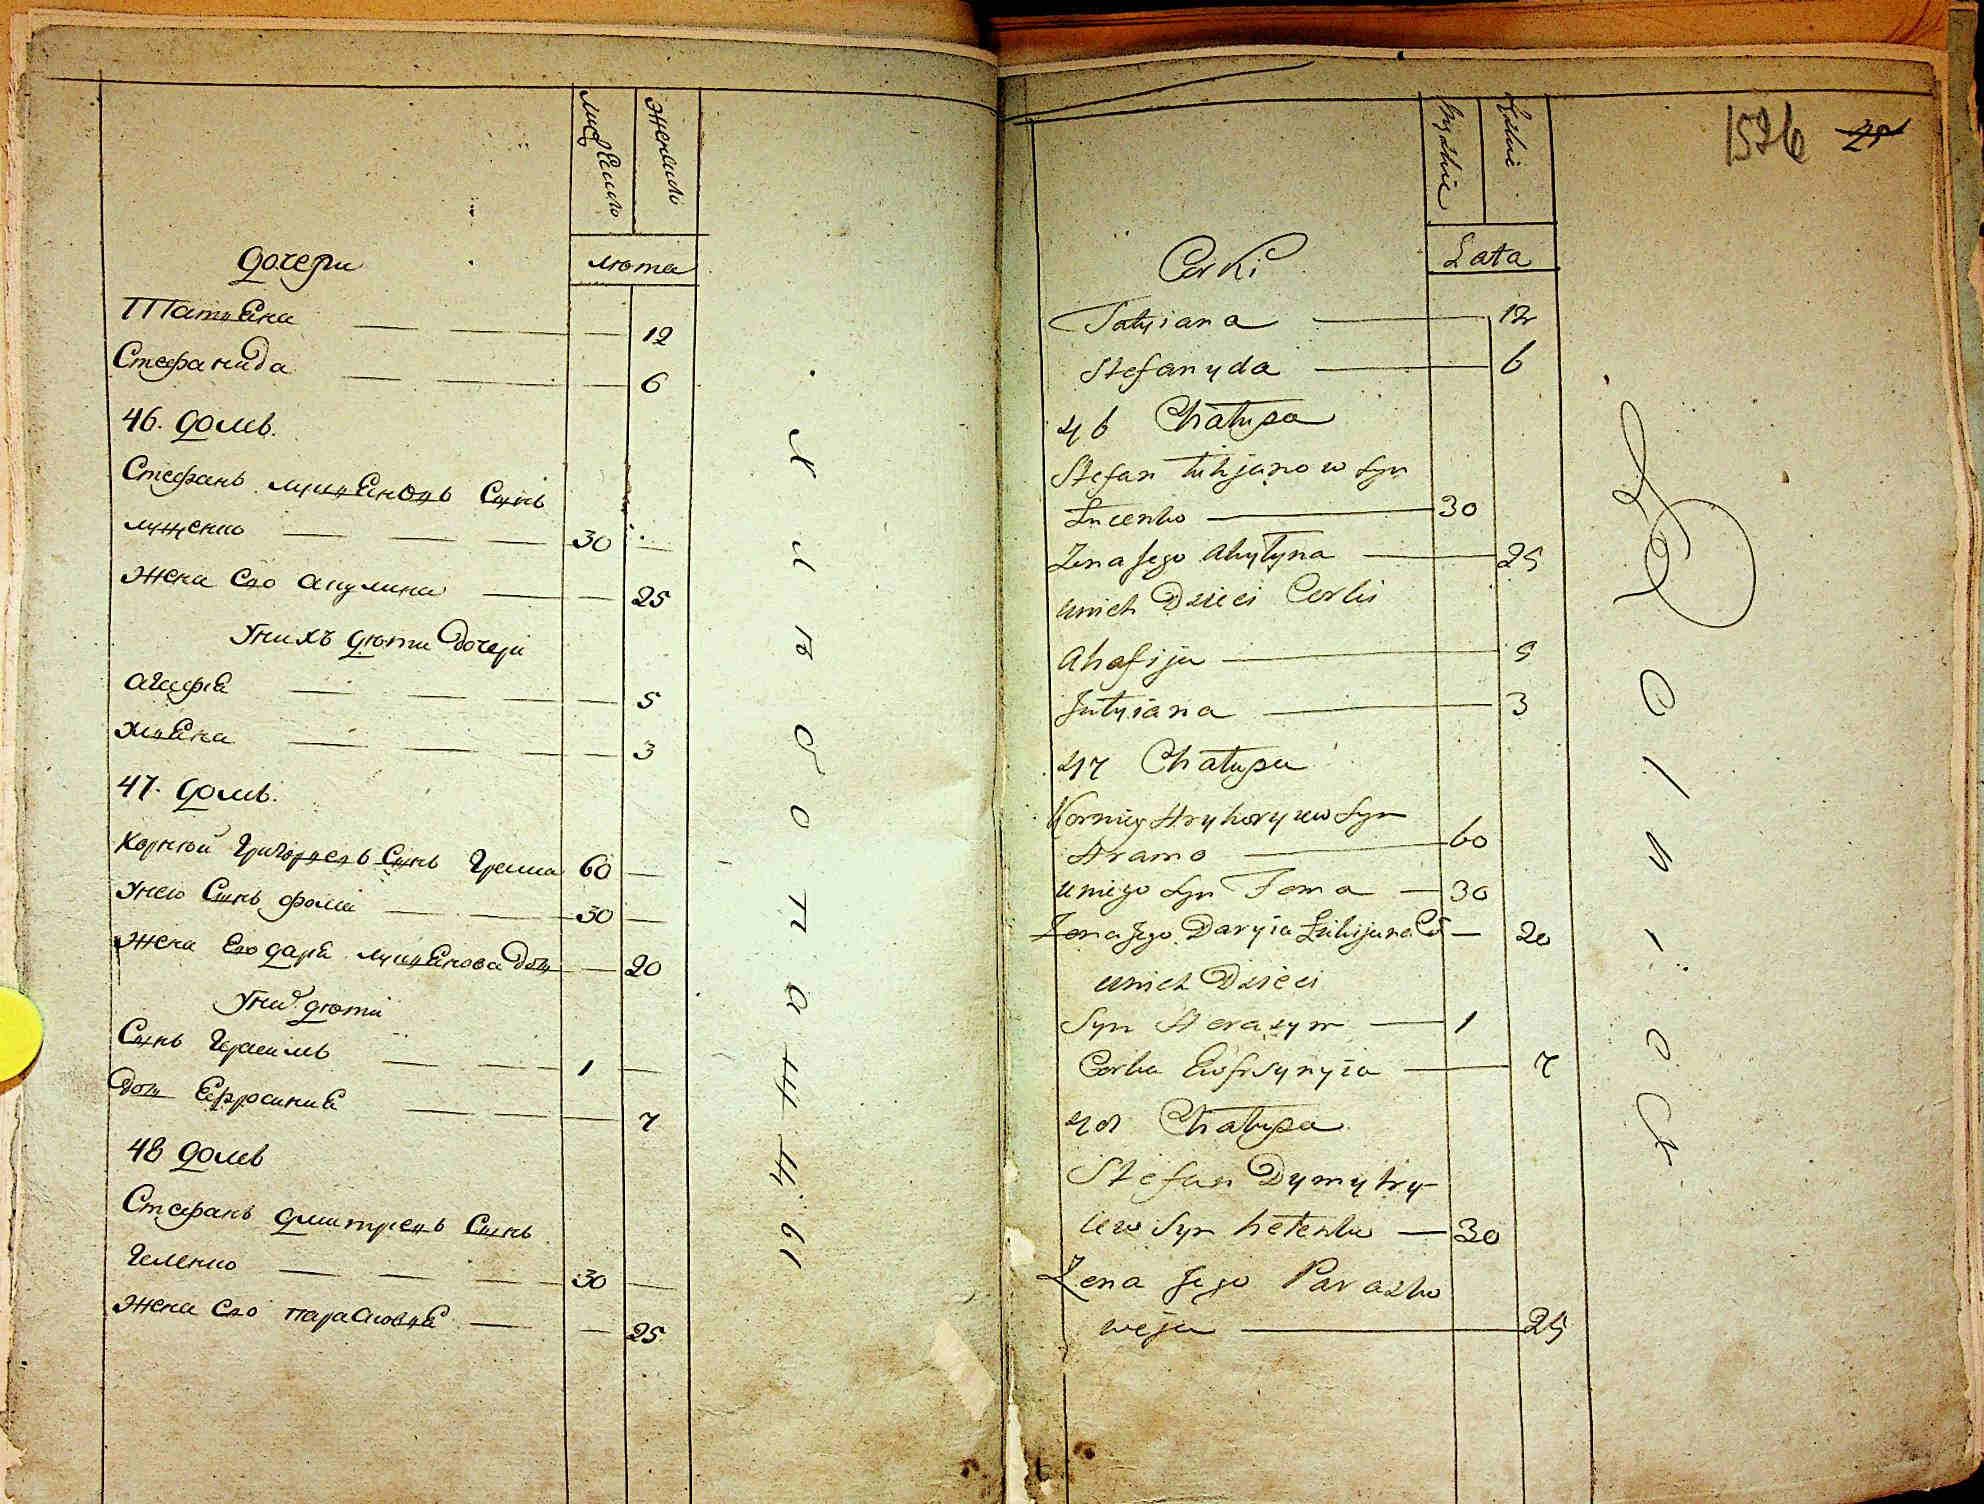 женско
лѣта
дочери
Татьяна 12
Стефанида 6
46. домъ.
Стефанъ Лукьяновъ Сынъ
луценко 30
жена его акулина 25
Унихъ дѣти дочери
агафья 5
ульяна 3
47. домъ.
Корнѣй Григорьевъ Сынъ Грама 60
Унего Сынъ фома 30
жена Его дарья Лукьянова дочь 20
Унихъ дѣти
Сынъ Герасимъ 1
дочь Ефросиния 7
48 домъ
Стефанъ дмитреевъ Сынъ
Геленко 30
жена его парасковья 25
1526 25
Lata
Corki
Tatyiana 12
Stefanyda 6
46 Chałupa
Stefan Lukjanow Syn
Lucenko 30
Zona Jego Akyłyna 25
unich Dzieci Corki
Ahafija 5
Jułyiana 3
47 Chałupa
Korniey Hryhoryiew Syn
Hramo 60
uniego Syn Foma 30
Zona Jego Daryia Lukijana Có 20
unich Dzieci
Syn Herasym 1
Corka Eufrsynyia 7
48 Chałupa
Stefan Dymytry
iew Syn hełenko 30
Zena Jego Parasko
weja 25